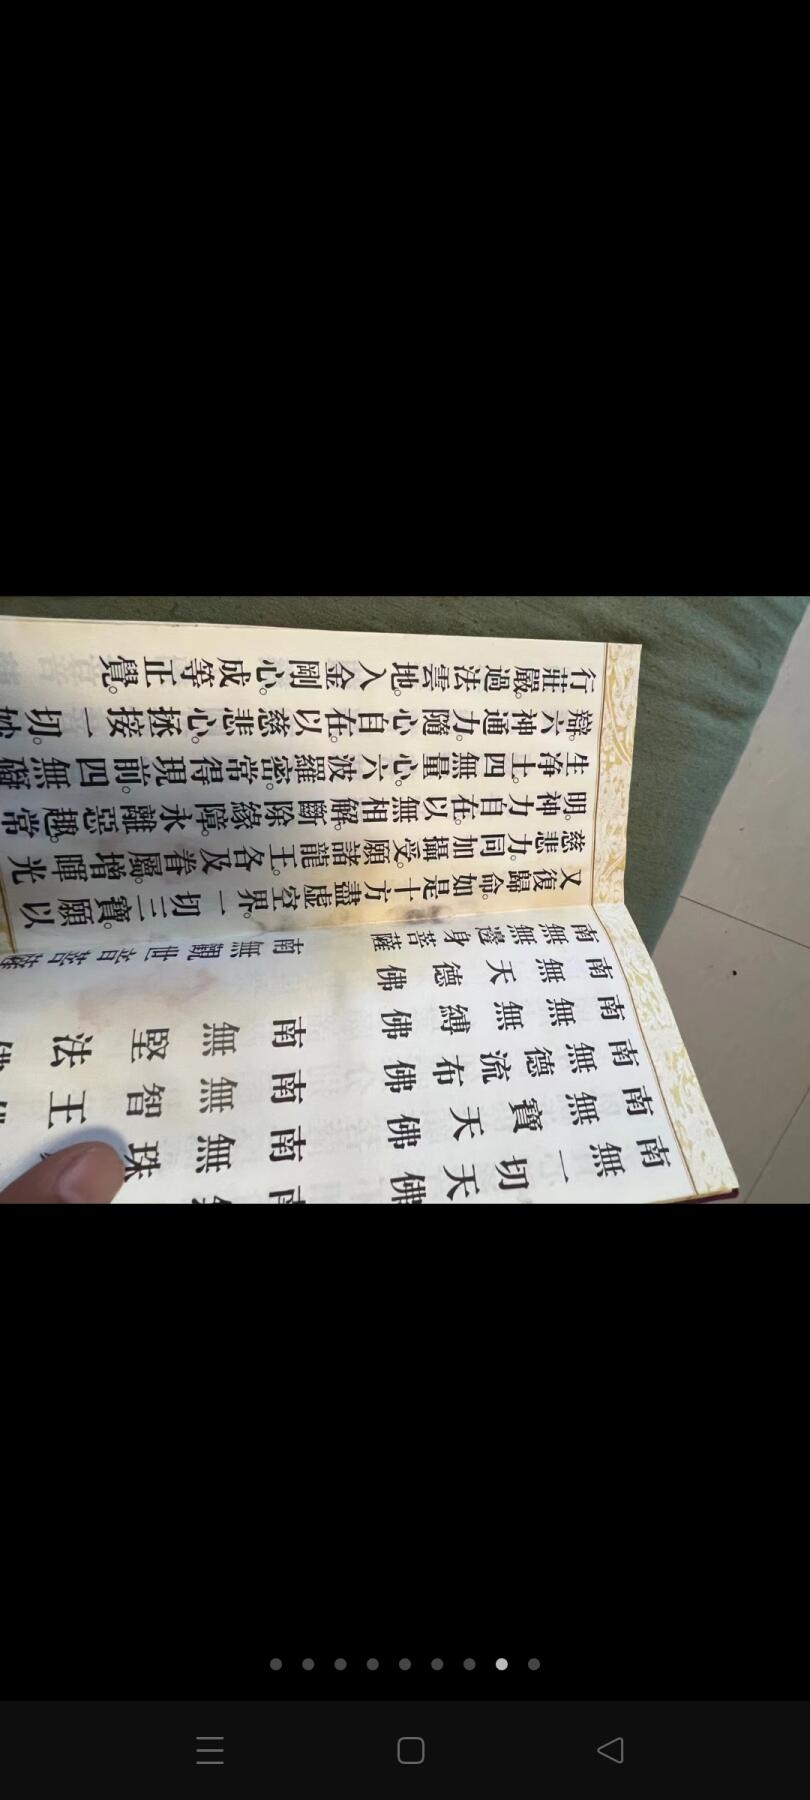 南無一切天佛
南無寶天佛 南無珠
南無德流布佛 南無智王佛
南無無縛佛 南無堅法佛
南無天德佛
南無無邊身菩薩 南無觀世音菩薩
又復歸命。如是十方盡虛空界。一切三寶。願以
慈悲力。同加攝受。願諸龍王。各及眷屬。增暉光
明。神力自在。以無相解。斷除緣障。永離惡趣。常
生净土。四無量心。六波羅密。常得現前。四無礙
辯。六神通力。隨心自在。以慈悲心。拯接一切。妙
行莊嚴。過法雲地。入金剛心。成等正覺。